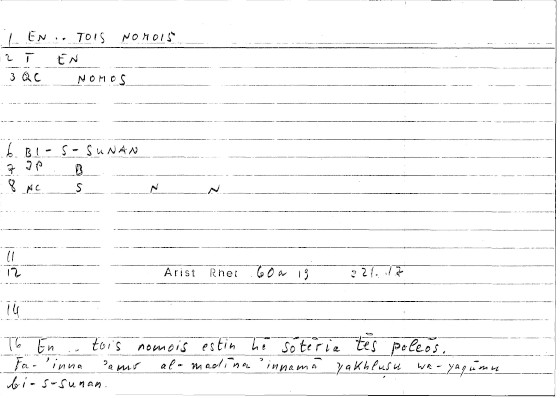 1 EN .. TOIS NOMOIS
2 T EN
3 QC NOMOS
6 BI-S-SUNAN
7 JP B
8 NC S N N
11
12 Arist Rhet 60a 19 221.17
14
16 En .. tois nomois estin hē sōtēria tēs poleōs.
Fa-'inna 'amr al-madīna 'innamā yakhluṣu wa-yaqūmu
bi-s-sunan.